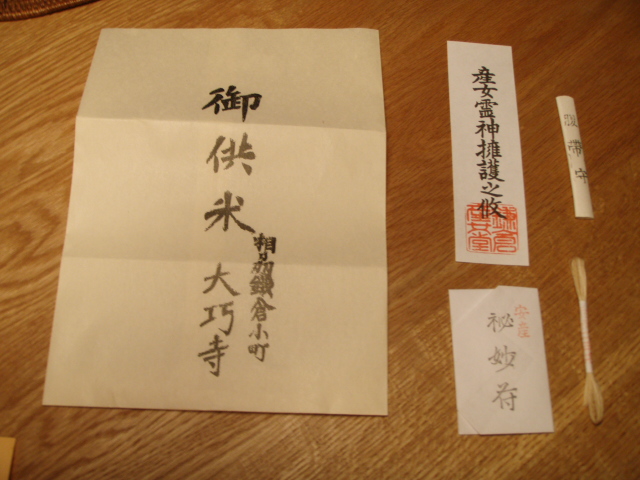 御供米
相州鎌倉小町
大巧寺
産女霊神擁護之攸
鎌倉
産女堂
安産
秘妙符
腹帯守